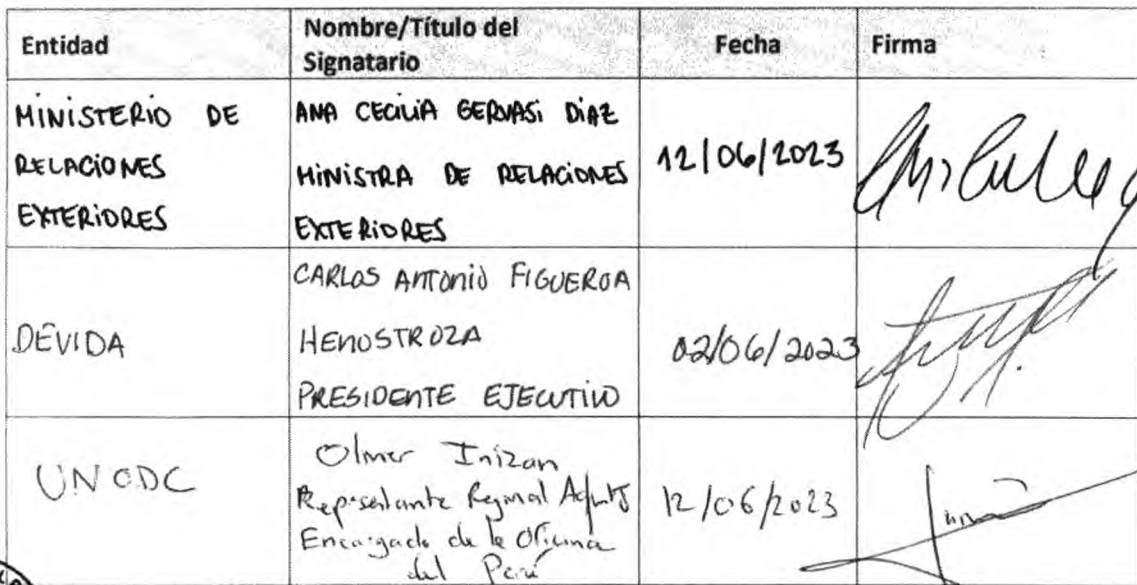 Entidad
Nombre/Título del
Signatario
Fecha
Firma
MINISTERIO DE
RELACIONES
EXTERIORES
ANA CECILIA GERVASI DIAZ
MINISTRA DE RELACIONES
EXTERIORES
12/06/2023
DEVIDA
CARLOS ANTONIO FIGUEROA
HENOSTROZA
PRESIDENTE EJECUTIVO
02/06/2023
UNODC
Olivier Inizan
Representante Regional Adjunto
Encargado de la Oficina
del Perú
12/06/2023